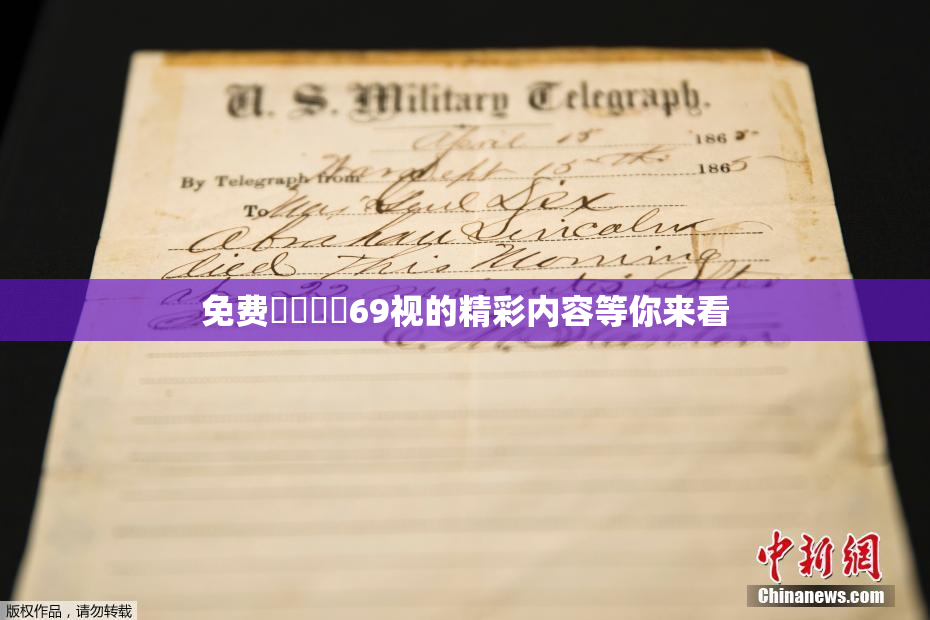 U. S. Military Telegraph.
April 15 1865
By Telegraph from War Dept 15th 1865
To Maj Genl Dix
Abraham Lincoln
died This Morning
at 22 minutes after
免费69视的精彩内容等你来看
E. M. Stanton
中新网
Chinanews.com
版权作品，请勿转载